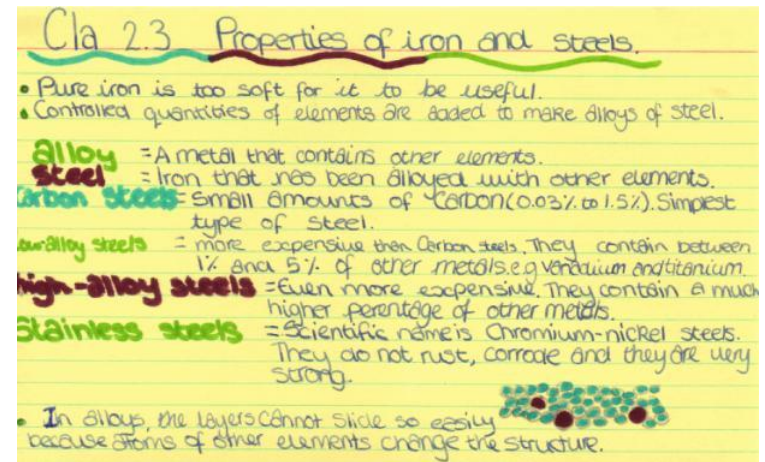 C1a 2.3 Properties of iron and steels.
• Pure iron is too soft for it to be useful.
• Controlled quantities of elements are added to make alloys of steel.
alloy = A metal that contains other elements.
steel = Iron that has been alloyed with other elements.
Carbon steels = Small amounts of Carbon (0.03% to 1.5%). Simplest
type of steel.
Low-alloy steels = more expensive than Carbon steels. They contain between
1% and 5% of other metals. e.g vanadium and titanium.
high-alloy steels = Even more expensive. They contain a much
higher perentage of other metals.
Stainless steels = Scientific name is Chromium-nickel steels.
They do not rust, corrode and they are very
strong.
• In alloys, the layers cannot slide so easily
because atoms of other elements change the structure.